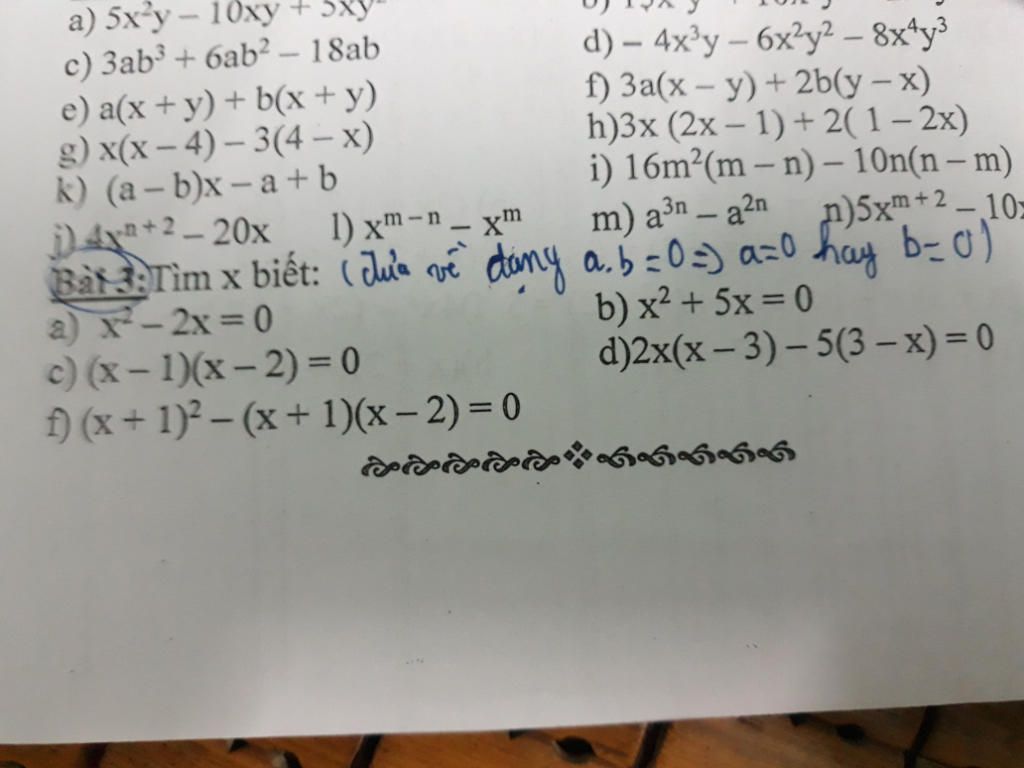 a) 5x²y – 10xy + 5xy²
c) 3ab³ + 6ab² – 18ab
d) – 4x³y – 6x²y² – 8x⁴y³
e) a(x + y) + b(x + y)
f) 3a(x – y) + 2b(y – x)
g) x(x – 4) – 3(4 – x)
h)3x (2x – 1) + 2( 1 – 2x)
k) (a – b)x – a + b
i) 16m²(m – n) – 10n(n – m)
j) 4xⁿ⁺² – 20x l) xᵐ⁻ⁿ – xᵐ m) a³ⁿ – a²ⁿ n)5xᵐ⁺² – 10x
Bài 3:Tìm x biết: (đưa về dạng a.b=0 => a=0 hay b=0)
a) x² – 2x = 0
b) x² + 5x = 0
c) (x – 1)(x – 2) = 0
d)2x(x – 3) – 5(3 – x) = 0
f) (x + 1)² – (x + 1)(x – 2) = 0